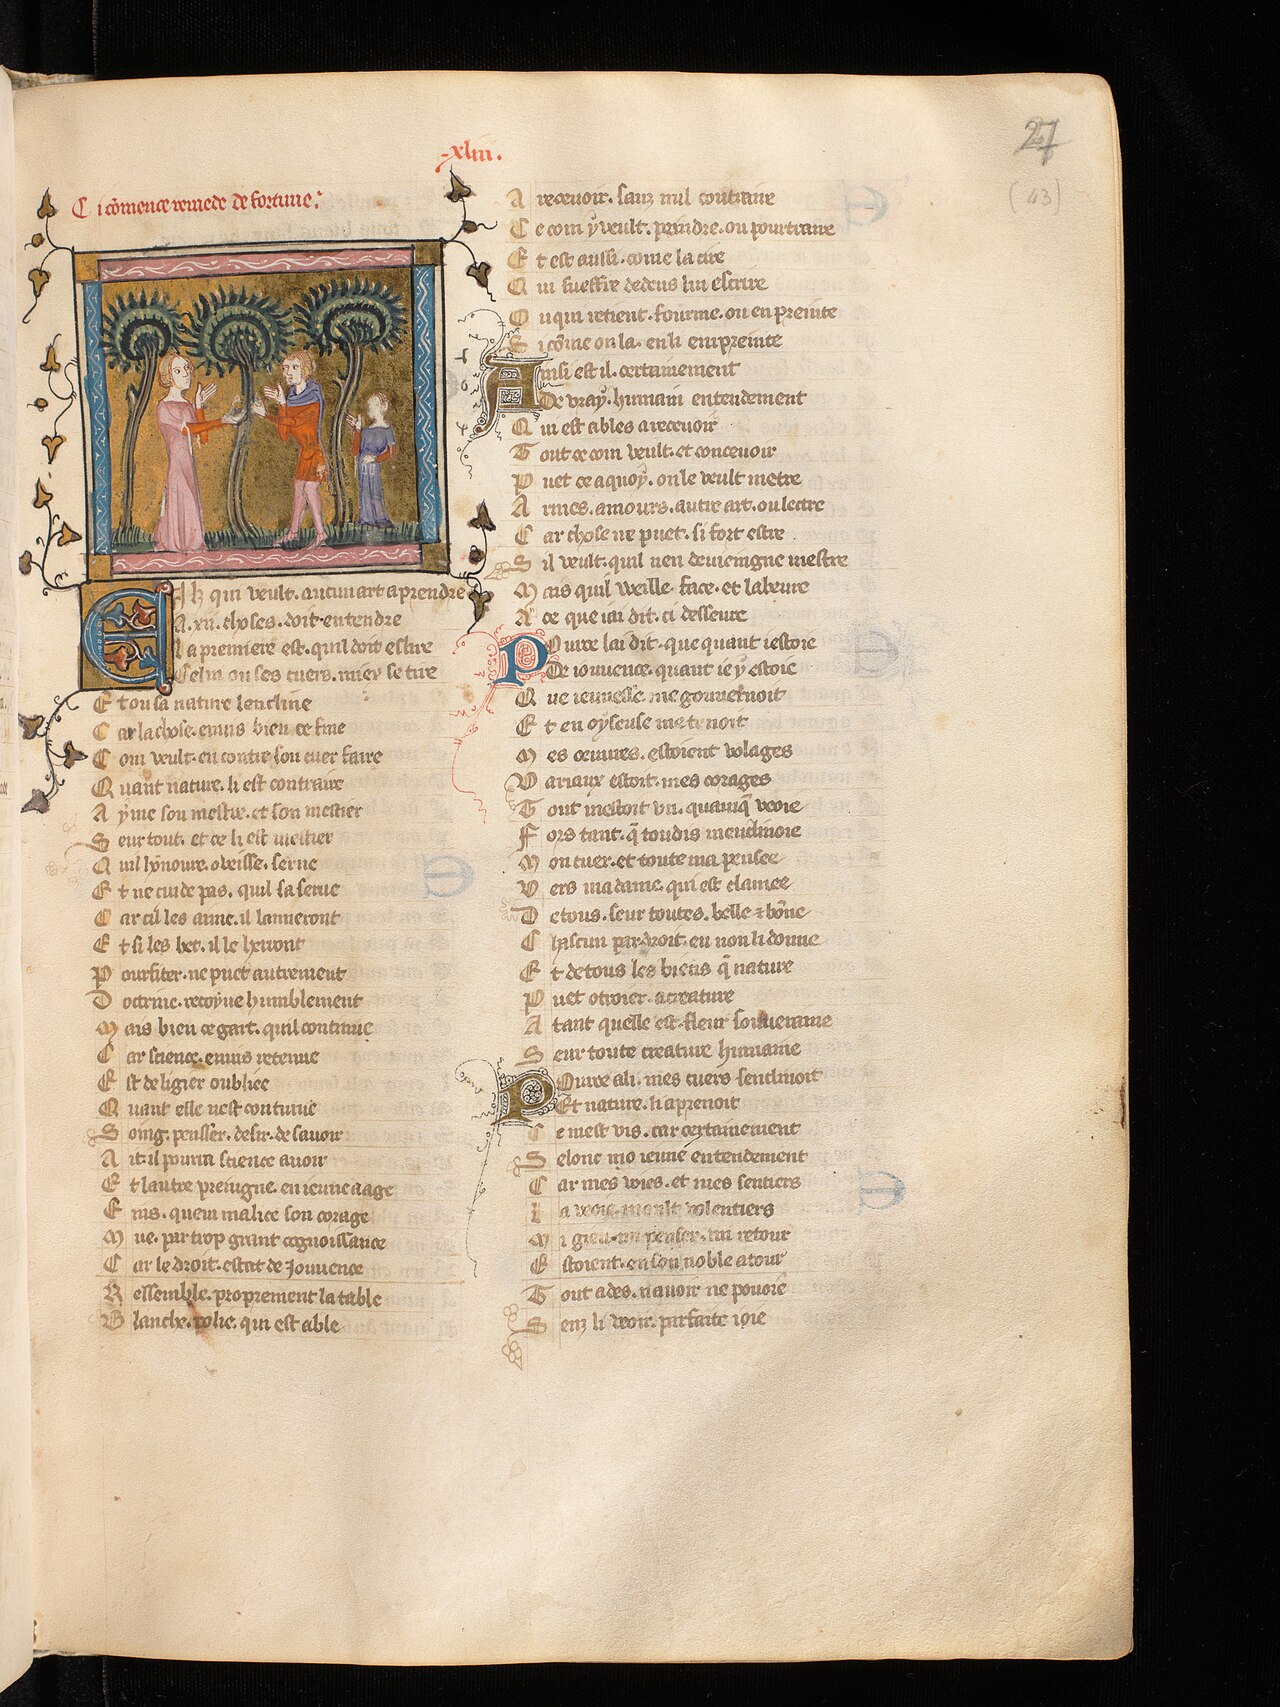 .xliii.
27
(43)
Ci cōmence remede de fortune.
Cilz qui veult. aucun art aprendre
A .xii. choses. doit entendre
La premiere est. quil doit eslire
Celui ou ses cuers. miex se tire
Et ou sa nature lencline
Car la chose. enuis bien ce fine
Com veult. en contre son cuer faire
Quant nature. li est contraire
Ayme son mestre. et son mestier
Seur tout. et ce li est mestier
Quil lynoure. obeisse. serue
Et ne cuide pas. quil sa serue
Car cil les aime. il lameront
Et si les het. il le herront
Pourfiter. ne puet autrement
Doctrine. recoyue humblement
Mais bien ce gart. quil continue
Car science. enuis retenue
Est de ligier oubliee
Quant elle nest continue
Soing. pensser. desir. de sauoir
Ait. il pourra science auoir
Et lautre preingne. en ieune aage
Eins. quen malice son corage
Mue. par trop grant cognoissance
Car le droit. estat de Jouuence
Ressemble. proprement la table
Blanche. polie. qui est able
A receuoir. sanz nul contraire
Ce com y veult. peindre. ou pourtraire
Et est aussi. come la cire
Qui sueffre dedens lui escrire
Ou qui retient. fourme. ou enpreinte
Si cōme on la. en li empreinte
Ainsi est il. certainement
De vray. humain entendement
Qui est ables a receuoir
Tout ce com veult. et conceuoir
Puet ce a quoy. on le veult metre
Armes. amours. autre art. ou lectre
Car chose ne puet. si fort estre
Sil veult. quil nen deuieingne mestre
Mais quil weille. face. et labeure
A ce que iai dit. ci desseure
Pource lai dit. que quant iestoie
De iouuence. quant ie y estoie
Que ieunesse. me gouuernoit
Et en oyseuse me tenoit
Mes oeuures. estoient volages
Variaux estoit. mes corages
Tout mestoit vn. quanq̄ veoie
Fors tant. q̄ toudis menclinoie
Mon cuer. et toute ma pensee
Vers ma dame. qui est clamee
De tous. seur toutes. belle & bōne
Chascun par droit. eu non li donne
Et de tous les biens q̄ nature
Puet otroier. a creature
A tant quelle est fleur souueraine
Seur toute creature humaine
Pource a li. mes cuers senclinoit
Et nature. li aprenoit
Ce mest vis. car certainement
Selonc mō ieune entendement
Car mes voies. et mes sentiers
La veoie. moult volentiers
Mi gieu. mi penser. mi retour
Estoient. en son noble atour
Tout ades. nauoir ne pouoie
Senz li veoir. parfaite ioie